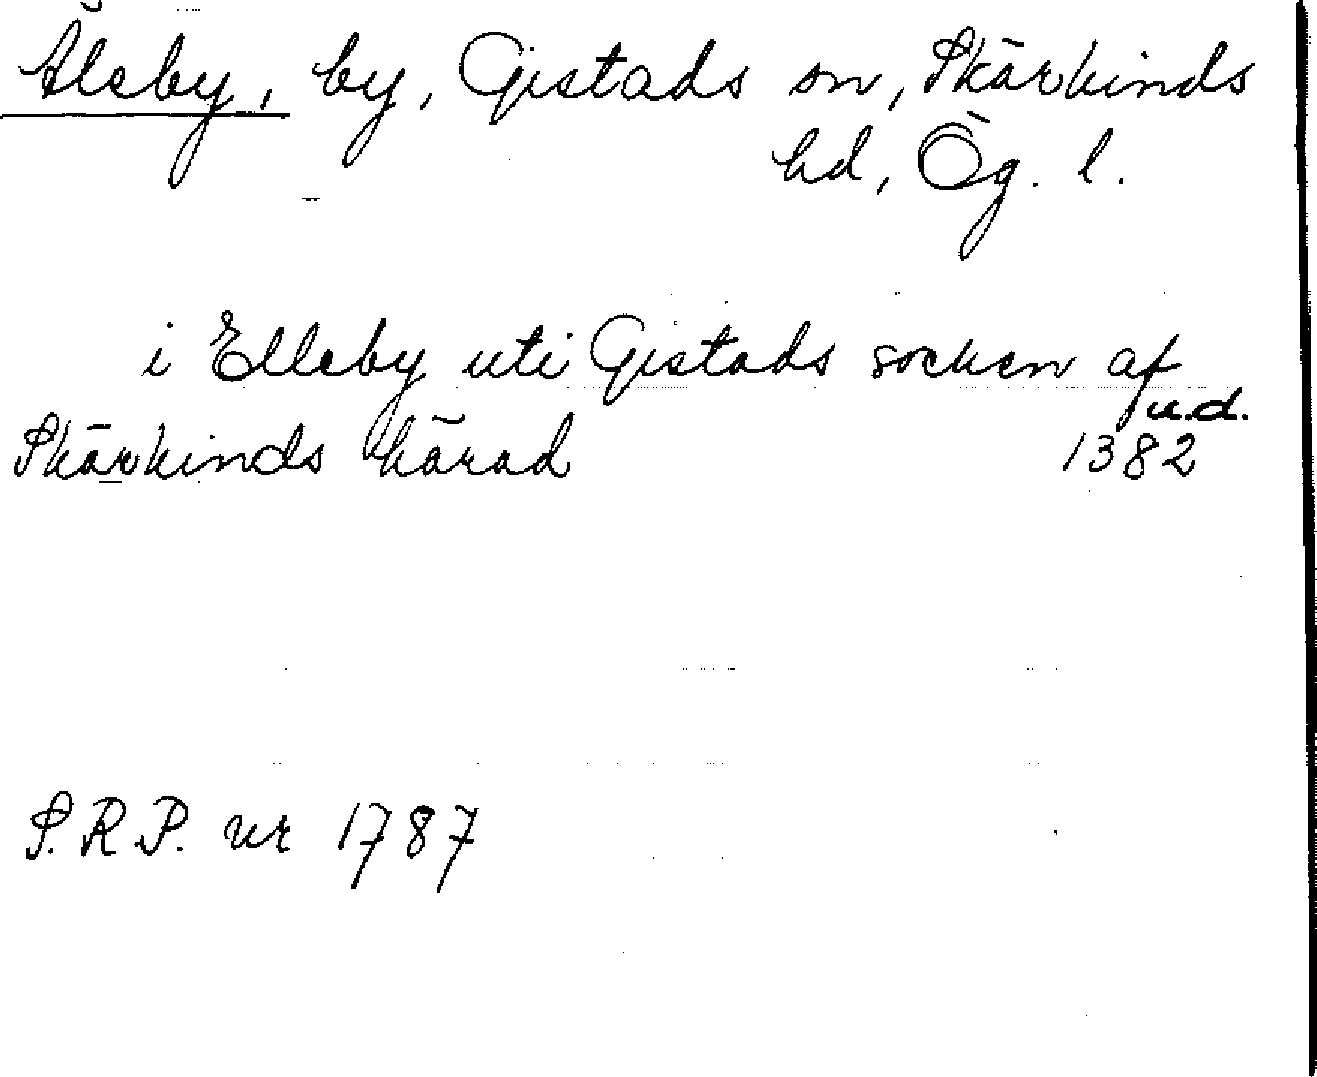 Älsby, by, Gistads sn, Skärkinds
hd, Ög. l.
i Elleby uti Gistads socken af
u.d.
Skärkinds härad 1382
S.R.P. nr 1787